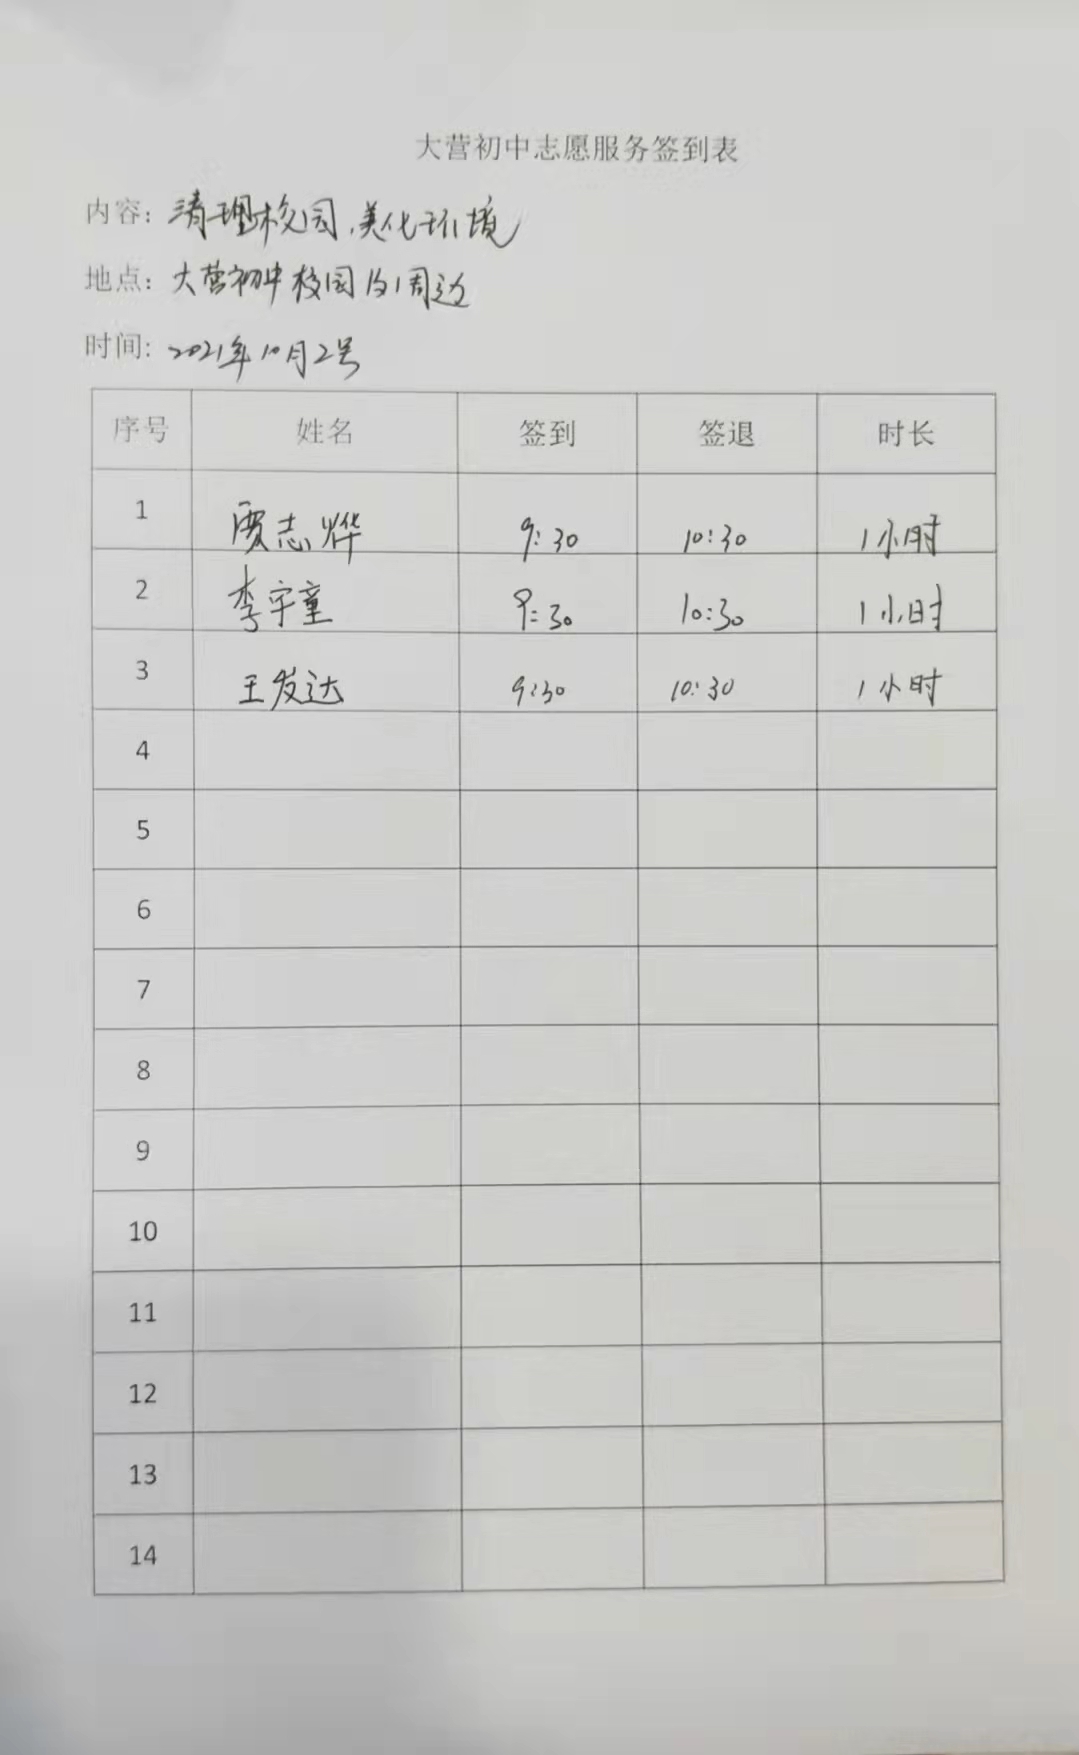 大营初中志愿服务签到表
内容：清理校园，美化环境
地点：大营初中校园及周边
时间：2021年10月2号
序号 姓名 签到 签退 时长
1 贾志烨 9:30 10:30 1小时
2 李宇童 9:30 10:30 1小时
3 王发达 9:30 10:30 1小时
4
5
6
7
8
9
10
11
12
13
14